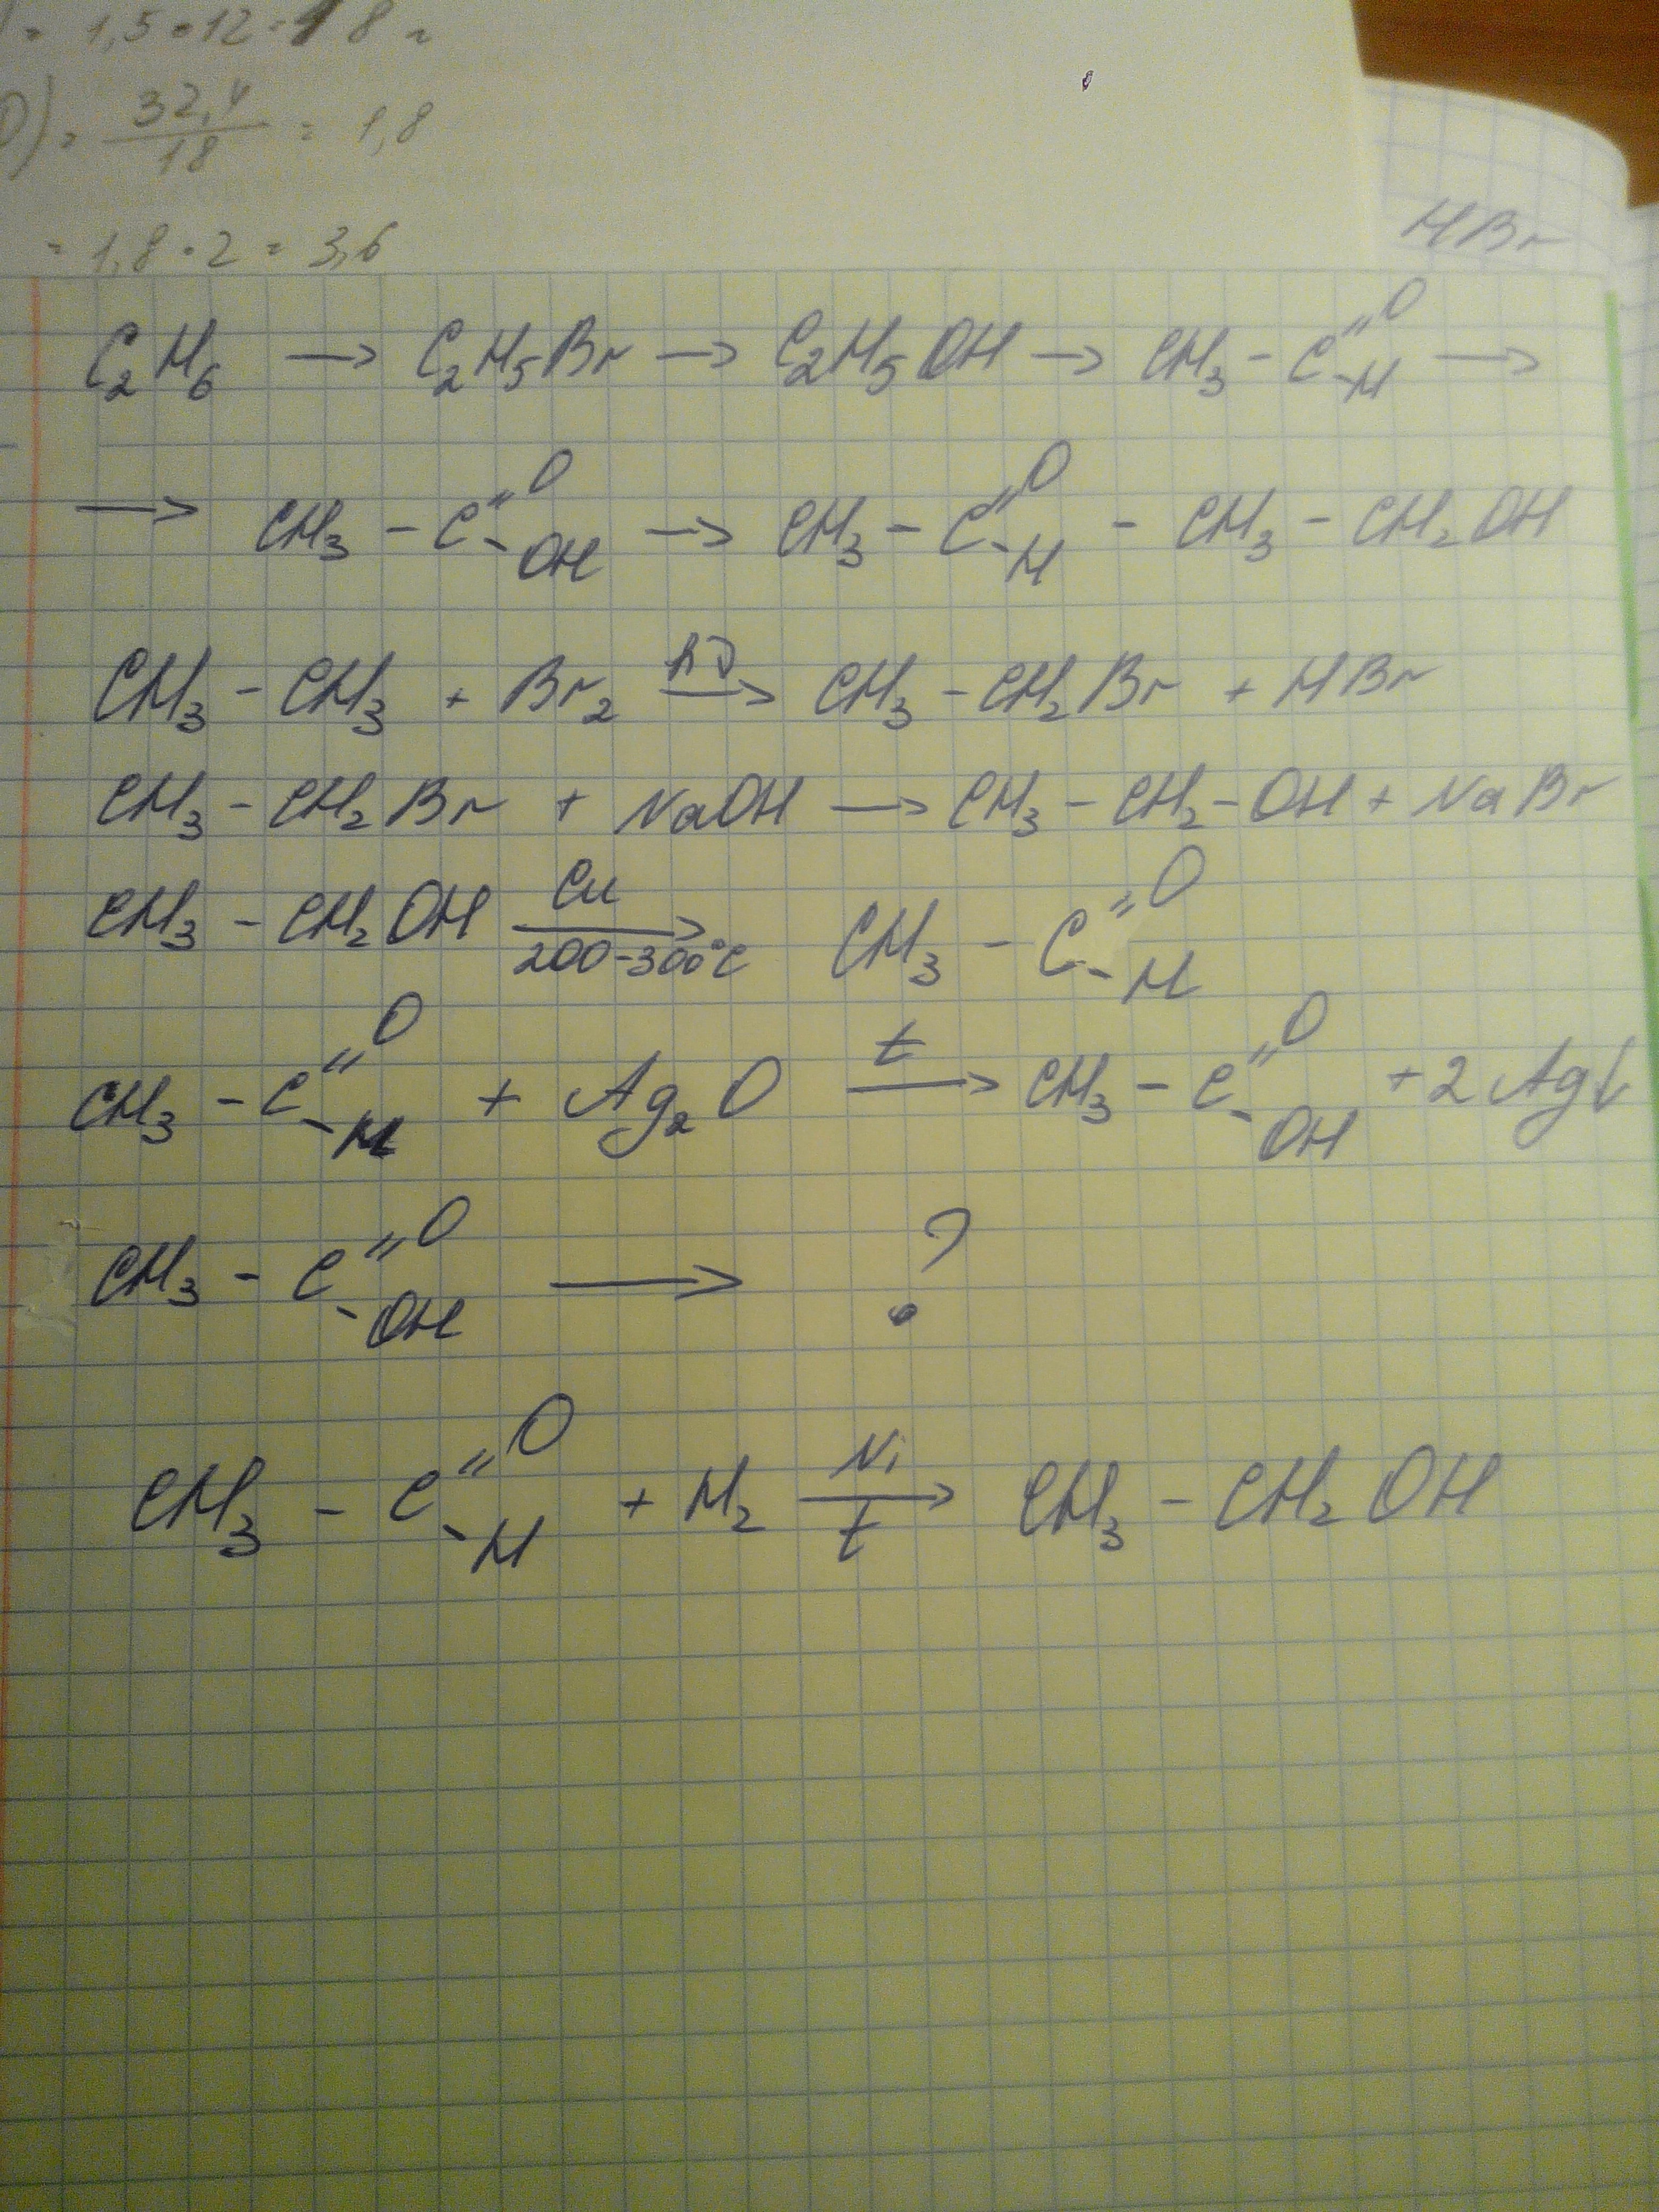 = 1,5 · 12 = 18 г
O) = 32,4 / 18 = 1,8
= 1,8 · 2 = 3,6
HBr
C₂H₆ → C₂H₅Br → C₂H₅OH → CH₃ - C(=O)-H →
→ CH₃ - C(=O)-OH → CH₃ - C(=O)-H - CH₃ - CH₂OH
CH₃ - CH₃ + Br₂ —hν→ CH₃ - CH₂Br + HBr
CH₃ - CH₂Br + NaOH → CH₃ - CH₂ - OH + NaBr
CH₃ - CH₂OH —Cu, 200-300°C→ CH₃ - C(=O)-H
CH₃ - C(=O)-H + Ag₂O —t→ CH₃ - C(=O)-OH + 2Ag↓
CH₃ - C(=O)-OH → ?
CH₃ - C(=O)-H + H₂ —Ni, t→ CH₃ - CH₂OH